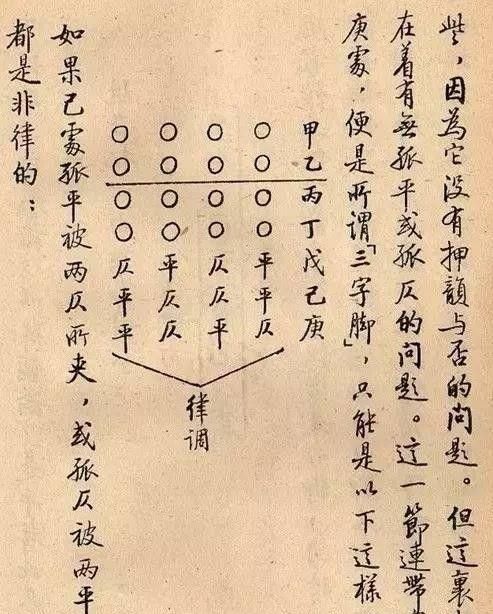 些，因為它没有押韻与否的问題。但這裏
在着有無孤平或孤仄的问題。這一節連帶
庚處，便是所謂「三字脚」，只能是以下這樣
甲乙丙丁戊己庚
○○○○平平仄
○○○○仄仄平
○○○○平仄仄
○○○○仄平平
律调
如果己處孤平被两仄所夾，或孤仄被两平
都是非律的：